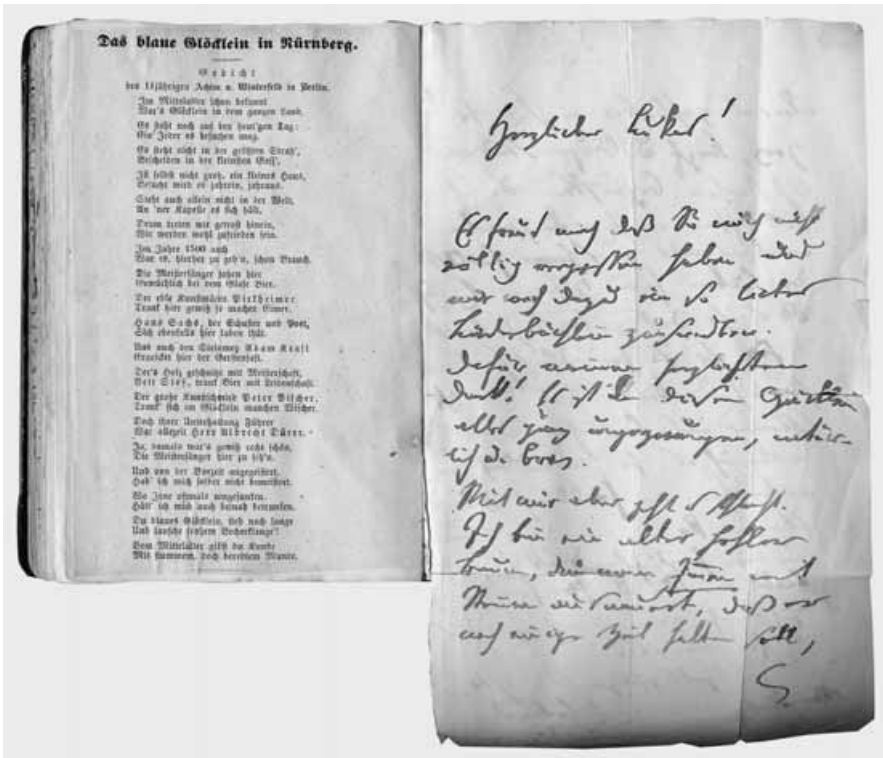 Das blaue Glöcklein in Nürnberg.
Gedicht
des 14jährigen Achim v. Winterfeld in Berlin.
Im Mittelalter schon bekannt
War's Glöcklein in dem ganzen Land.
Es steht noch auf den heut'gen Tag:
Ein Jeder es besuchen mag.
Es steht nicht in der größten Straß',
Bescheiden in der kleinsten Gass'.
Ist selbst nicht groß, ein kleines Haus,
Besucht wird es jahrein, jahraus.
Steht auch allein nicht in der Welt,
An 'ner Kapelle es sich hält.
Drum treten wir getrost hinein,
Wir werden wohl zufrieden sein.
Im Jahre 1500 auch
War es, hierher zu geh'n, schon Brauch.
Die Meistersänger saßen hier
Gemüthlich bei dem Glase Bier.
Der edle Pirkheimer
Trank hier gewiß so manchen Eimer.
Hans Sachs, der Schuster und Poet,
Sich ebenfalls hier laben thät.
Und auch den Steinmetz Adam Kraft
Erquicket hier der Gerstensaft.
Der's Holz geschnitzt mit Meisterschaft,
Veit Stoß, trank Bier mit Leidenschaft.
Der große Kunstschmied Peter Vischer,
Trank sich im Glöcklein manchen Wischer.
Doch ihrer Unterhaltung Führer
War allezeit Herr Albrecht Dürer.
Ja, damals war's gewiß recht schön,
Die Meistersänger hier zu seh'n.
Und von der Vorzeit angegeistert,
Hab' ich mich selber nicht bemeistert.
Wo Jene oftmals umgesunken,
Hätt' ich mich auch beinah betrunken.
Du blaues Glöcklein, steh noch lange
Und lausche frohem Becherklange!
Vom Mittelalter gibst du Kunde
Mit stummem, doch beredtem Munde.
Herzlicher !
Es freut mich daß Sie mich nicht
völlig vergessen haben und
mir noch dazu ein so liebes
Liederbüchlein zusendten.
Dafür meinen herzlichsten
Dank! Es ist in diesem
alles ganz ungezwungen, natür-
lich u. brav.
Mit mir aber geht es schlecht.
Ich bin ein alter hohler
Baum, den man mit
ausmauert, daß er
noch einige Zeit halten soll,